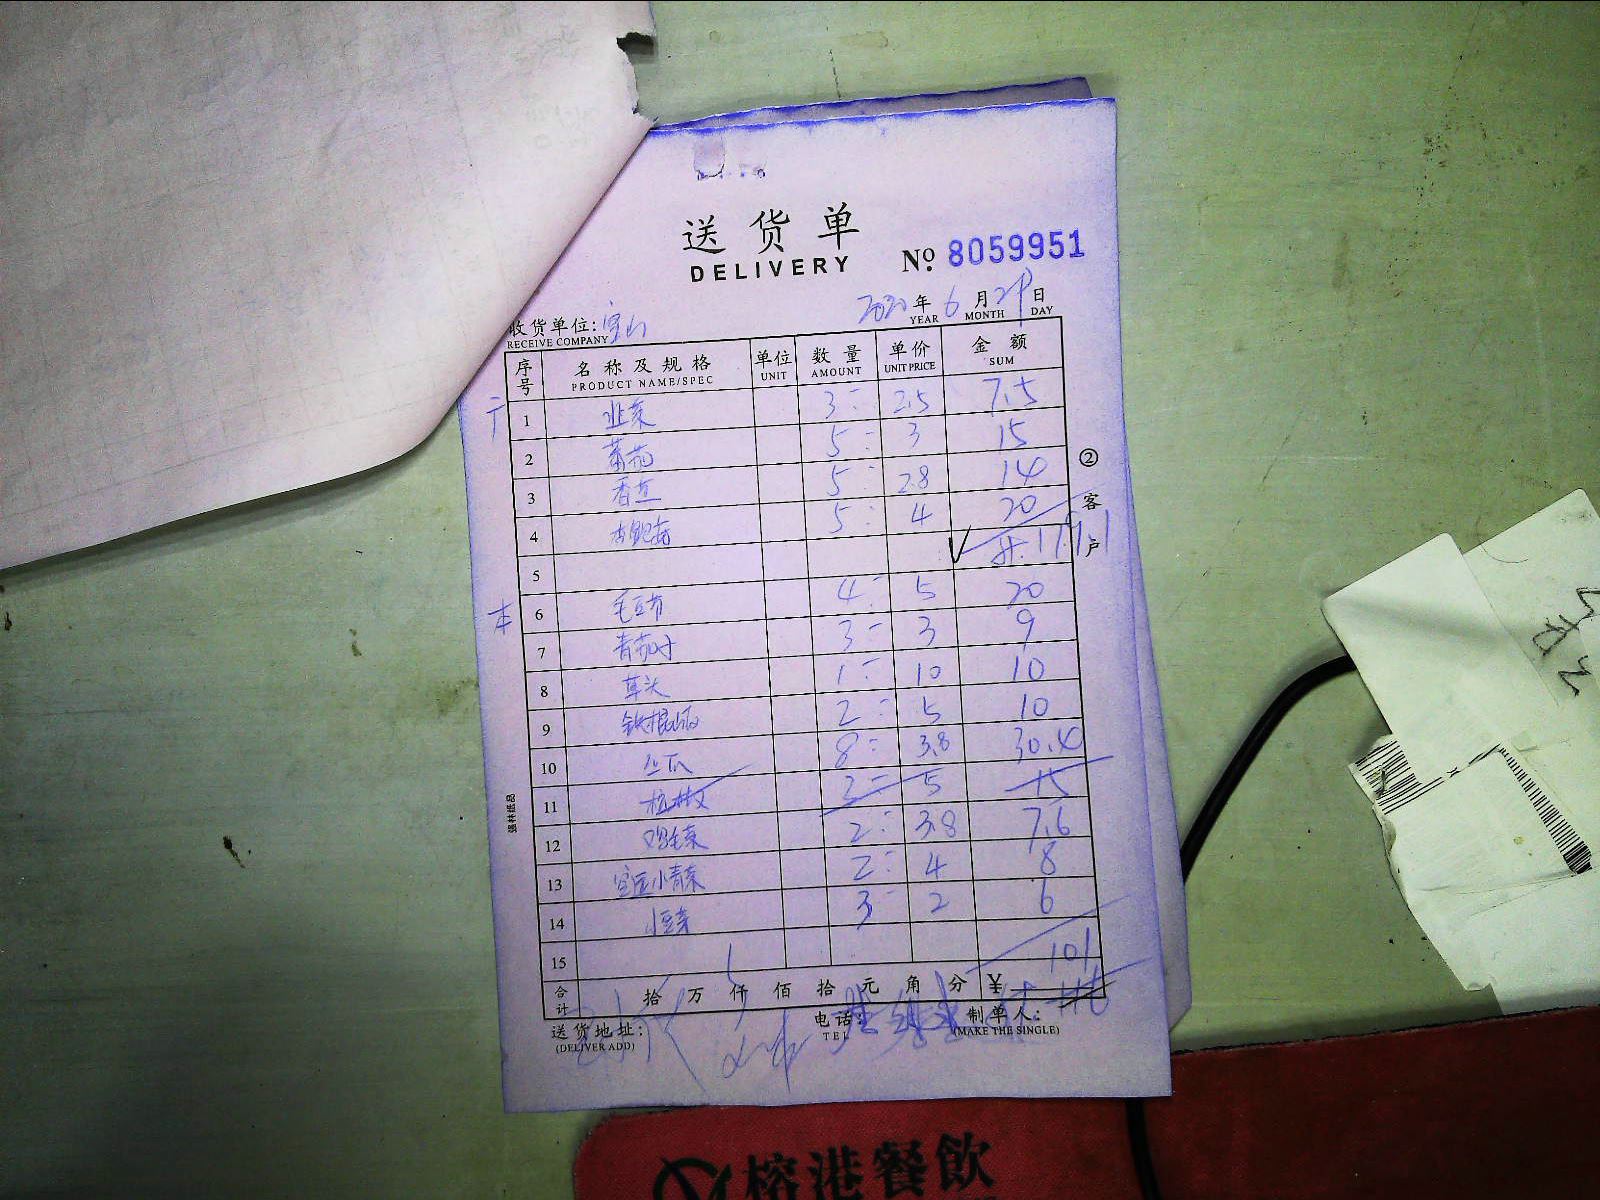 送货单
DELIVERY
№ 8059951
2020 年 6 月 29 日
YEAR MONTH DAY
收货单位: 宝山
RECEIVE COMPANY
序号 名称及规格 单位 数量 单价 金额
PRODUCT NAME/SPEC UNIT AMOUNT UNIT PRICE SUM
1 韭菜 3 2.5 7.5
2 蕃茄 5 3 15
3 香芹 5 2.8 14
4 杏鲍菇 5 4 20
5
本
6 毛豆节 4 5 20
7 青茄子 3 3 9
8 草头 1 10 10
9 铁棍山药 2 5 10
10 丝瓜 8 3.8 30.4
11 杭椒 3 5 15
12 鸡毛菜 2 3.8 7.6
13 小青菜 2 4 8
14 小豆芽 3 2 6
15 101
合计 拾 万 仟 佰 拾 元 角 分 ¥
送货地址: 电话: 制单人:
(DELIVER ADD) TEL (MAKE THE SINGLE)
② 客户
强林纸品
榕港餐飲